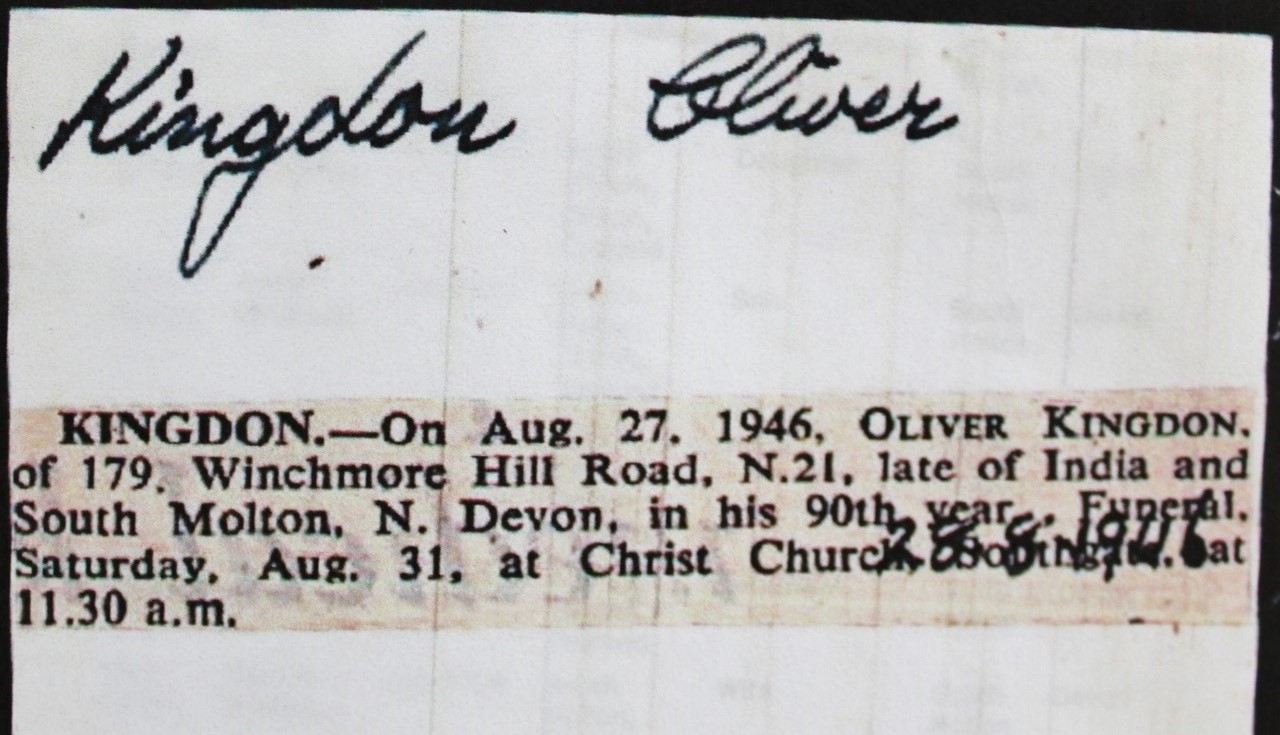 Kingdon Oliver
KINGDON.—On Aug. 27, 1946, OLIVER KINGDON,
of 179, Winchmore Hill Road, N.21, late of India and
South Molton, N. Devon, in his 90th year. Funeral,
Saturday, Aug. 31, at Christ Church, Southgate, at
11.30 a.m.
28 8 1946
Daughter
Son
South
Wife